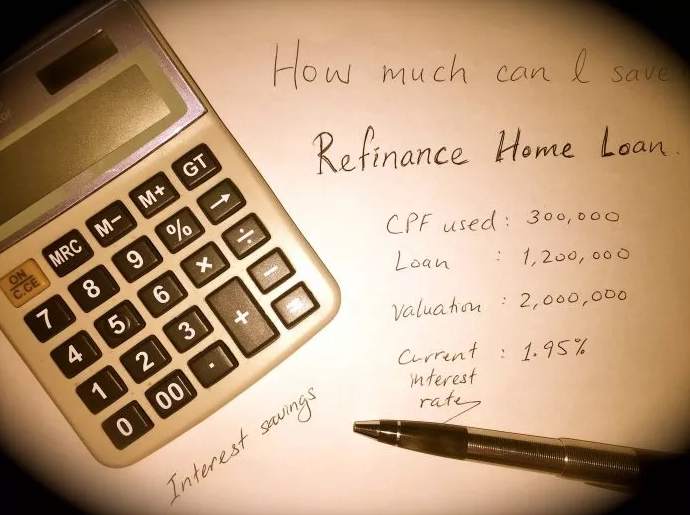 How much can I save
Refinance Home Loan.
CPF used : 300,000
Loan : 1,200,000
Valuation : 2,000,000
Current : 1.95%
interest
rate
Interest savings
GT
M+ →
M- % ÷
MRC 9 × -
ON C.CE 8 6 + =
7 5 3 .
4 2 00
1 0